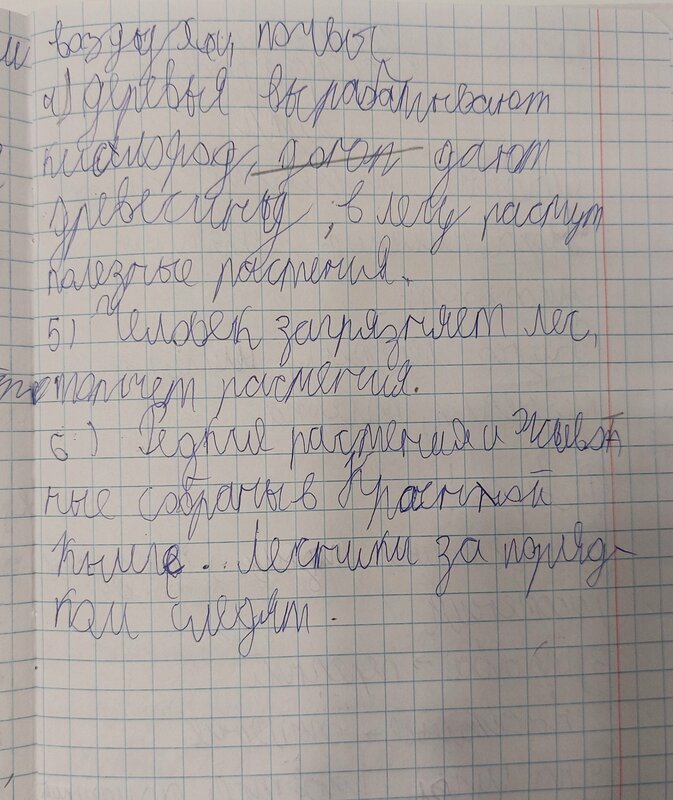 воздухом, почвы
4) деревья вырабатывают
кислород, дают
древесину, в лесу растут
полезные растения.
5) Человек загрязняет лес,
топчет растения.
6) Редкие растения и живот
ные собраны в Красной
книге. Лесники за поряд-
ком следят.